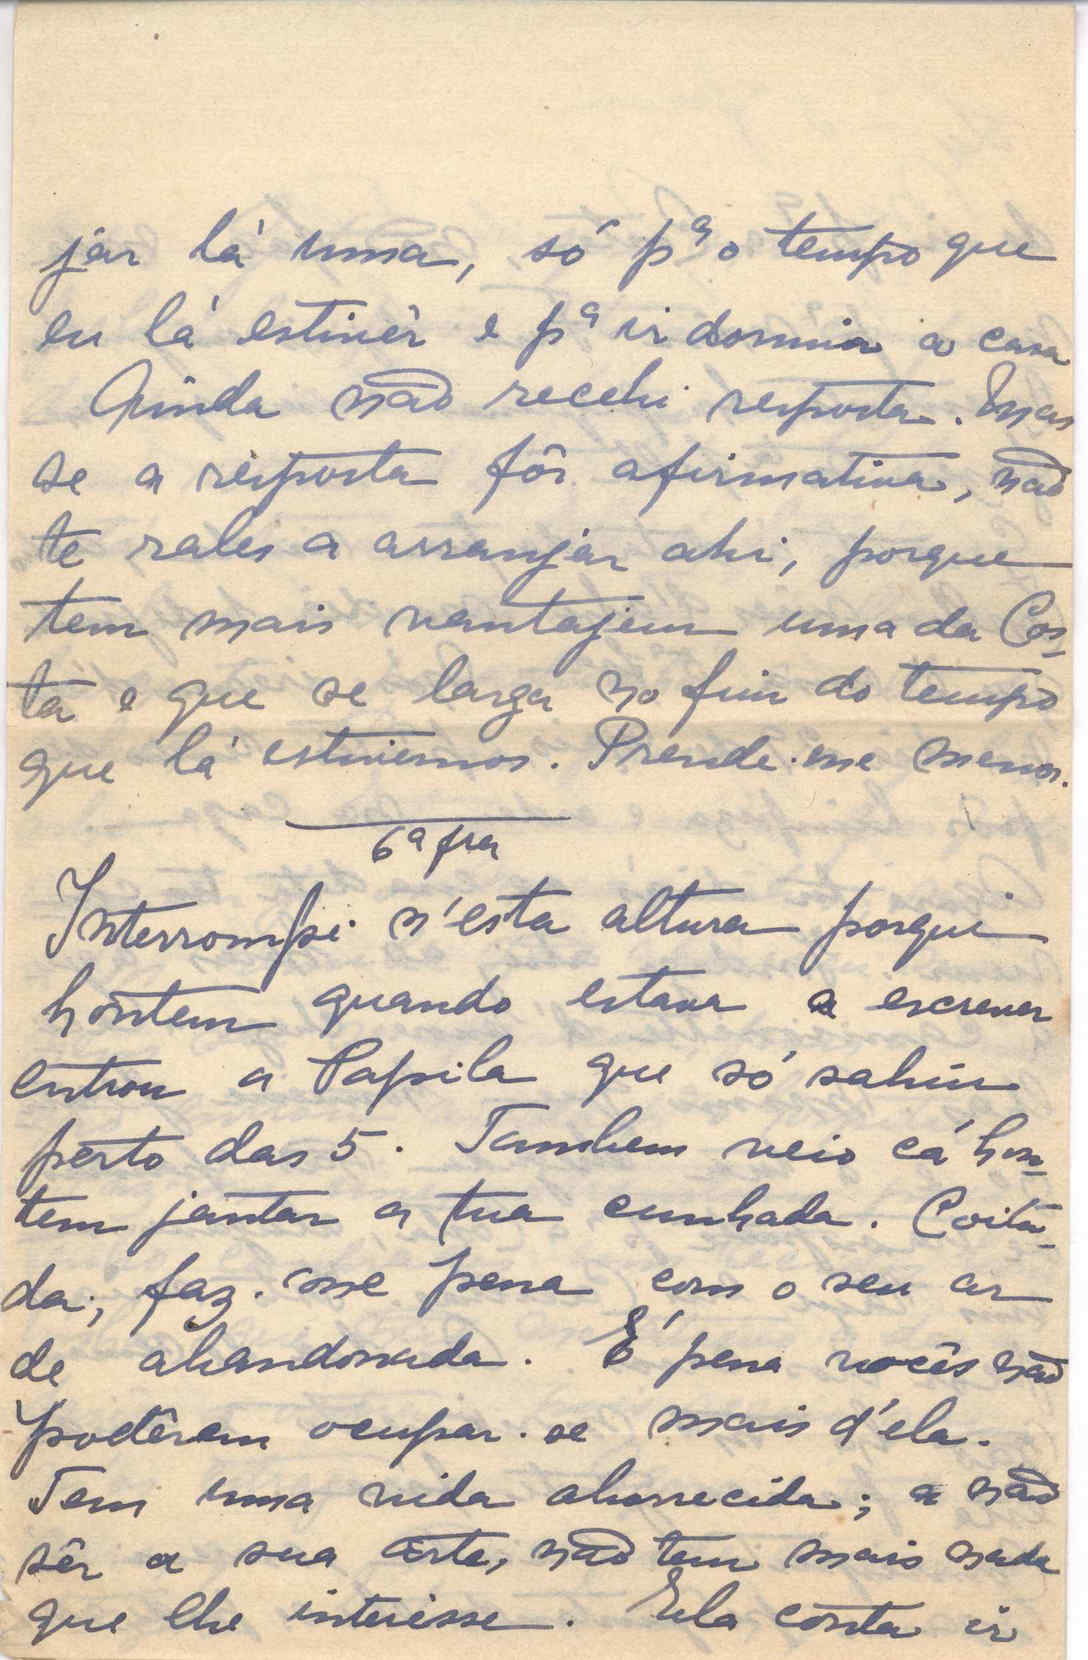 jar lá uma, só pª o tempo que
eu lá estivér e pª ir dormir a casa
Ainda não recebi resposta. Mas
se a resposta fôr afirmativa, não
te rales a arranjar ahi, porque
tem mais vantajem uma da Cos-
ta e que se larga no fim do tempo
que lá estivermos. Prende-me menos.
6ª fra
Interrompi n'esta altura porqui
hontem quando estava a escrever
entrou a Papila que só sahiu
perto das 5. Tambem veio cá hon-
tem jantar a tua cunhada. Coita-
da; faz-me pena com o seu ar
de abandonada. É pena vocês não
podêrem ocupar-se mais d'ela.
Tem uma vida aborrecida; a não
sêr a sua arte, não tem mais nada
que lhe interesse. Ela conta ir